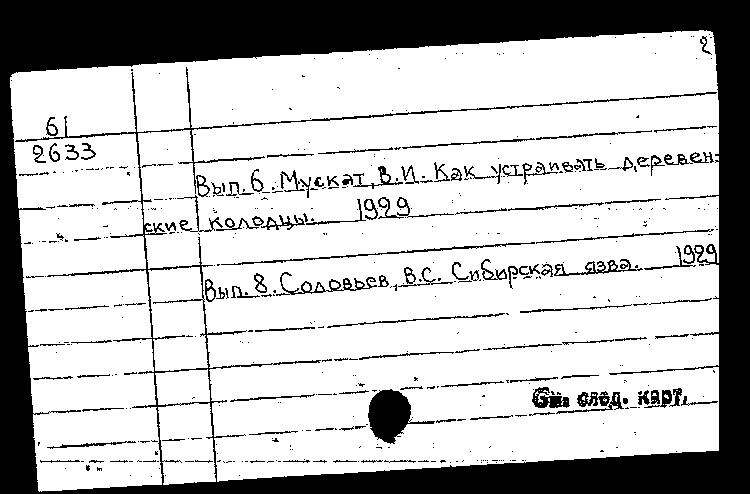 2
61
2633
Вып. 6. Мускат, В.И. Как устраивать деревен-
ские колодцы. 1929
Вып. 8. Соловьев, В.С. Сибирская язва. 1929
См. след. карт.